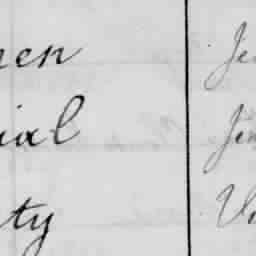 nen Je
ial Jen
ty Vi